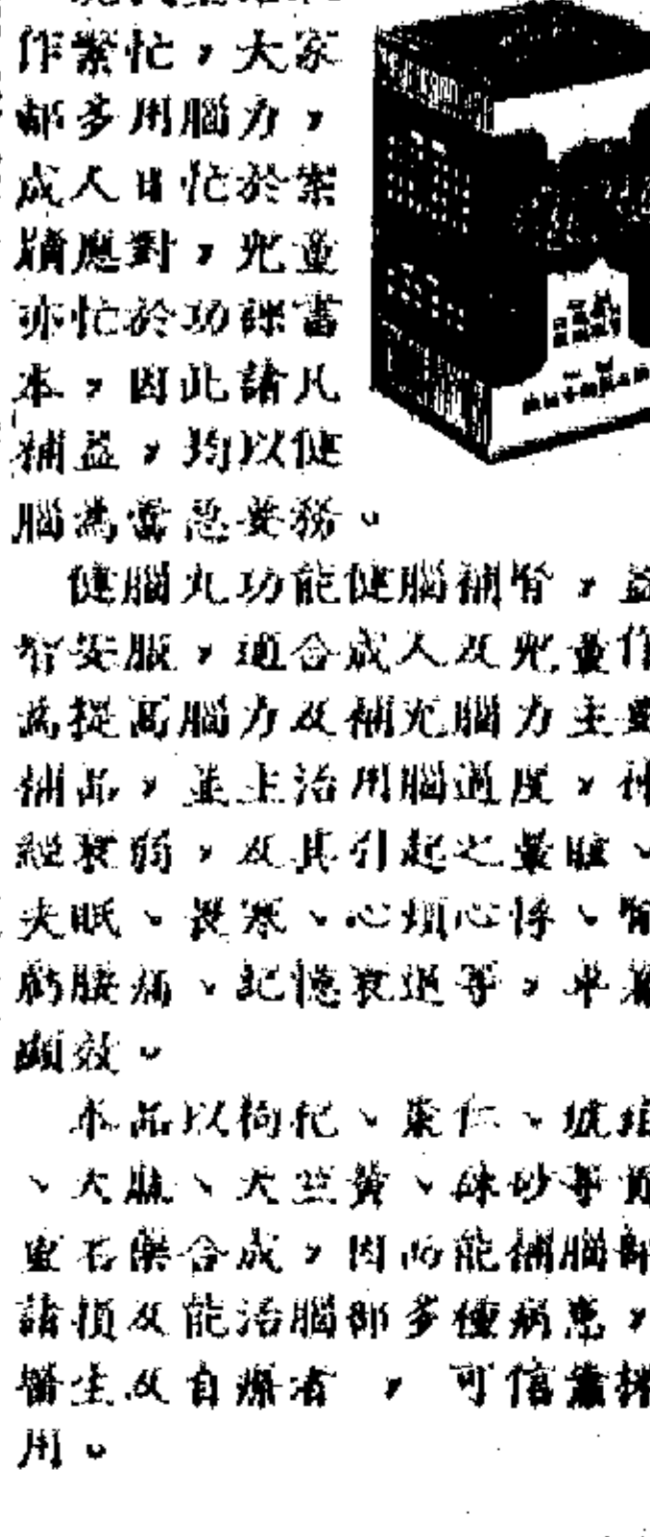 作繁忙，大家
都多用腦力，
成人日忙於案
牘應對，兒童
亦忙於功課書
本，因此諸凡
補益，均以健
腦為當急要務。
健腦丸功能健腦補腎，益
智安眠，適合成人及兒童作
為提高腦力及補充腦力主要
補品，並主治用腦過度，神
經衰弱，及其引起之暈眩、
失眠、畏寒、心煩心悸、腎
虧腰痛、記憶衰退等，卓著
顯效。
本品以枸杞、棗仁、琥珀
、天麻、天竺黃、硃砂等
靈石藥合成，因而能補腦部
諸損及能治腦部多種病患，
醫生及自療者，可信靠採
用。